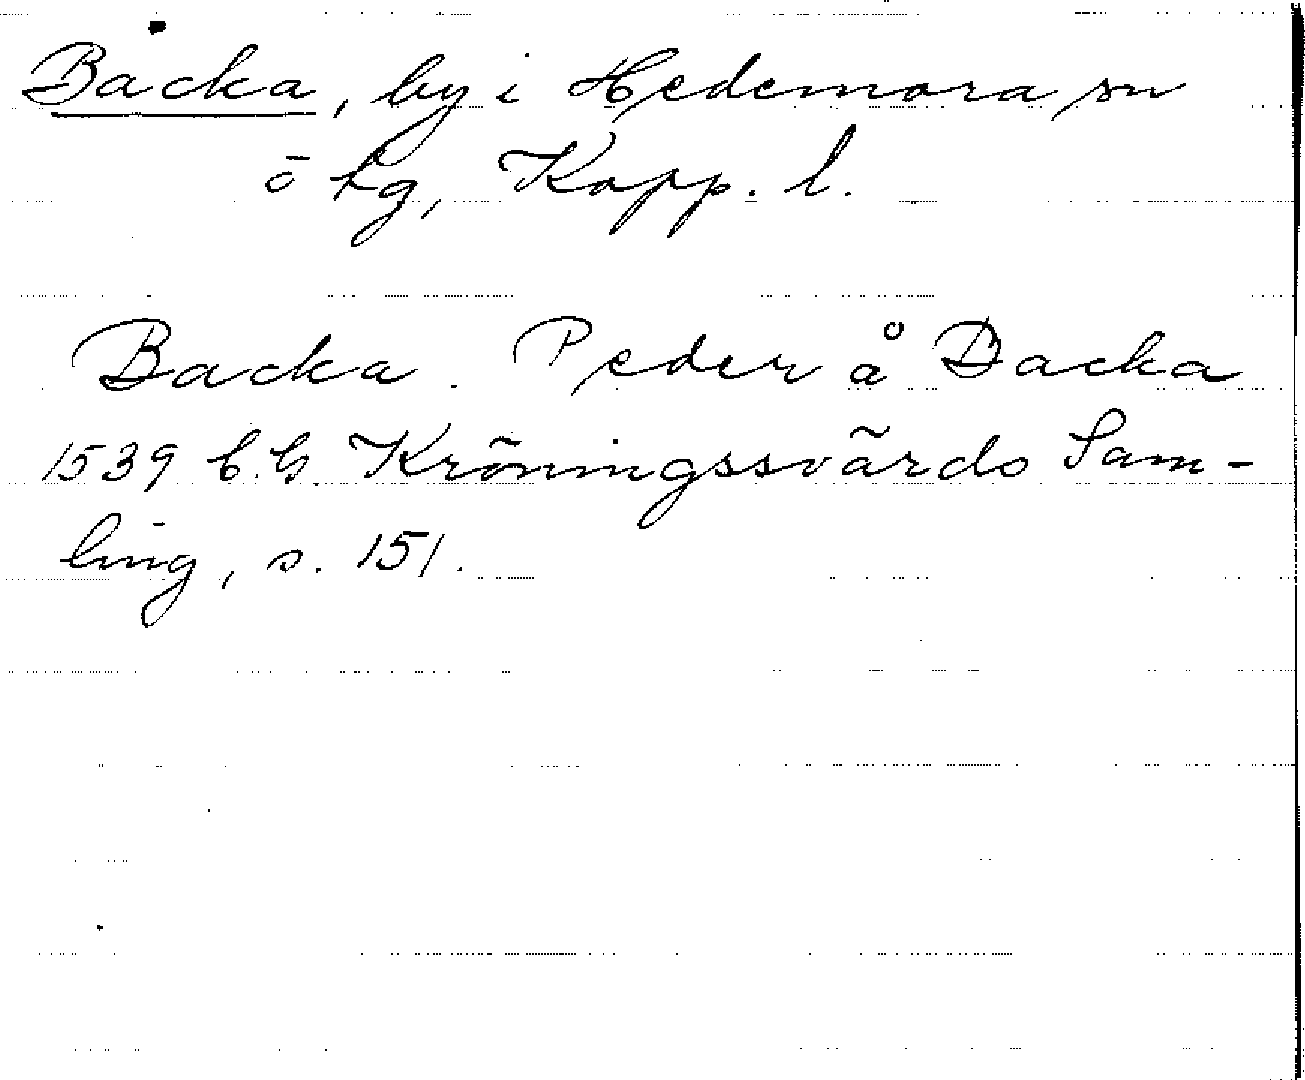 Backa, by i Hedemora sn
ö tg, Kopp. l.
Backa. Peder å Backa
1539 C.G. Kröningssvärds Sam-
ling, s. 151.